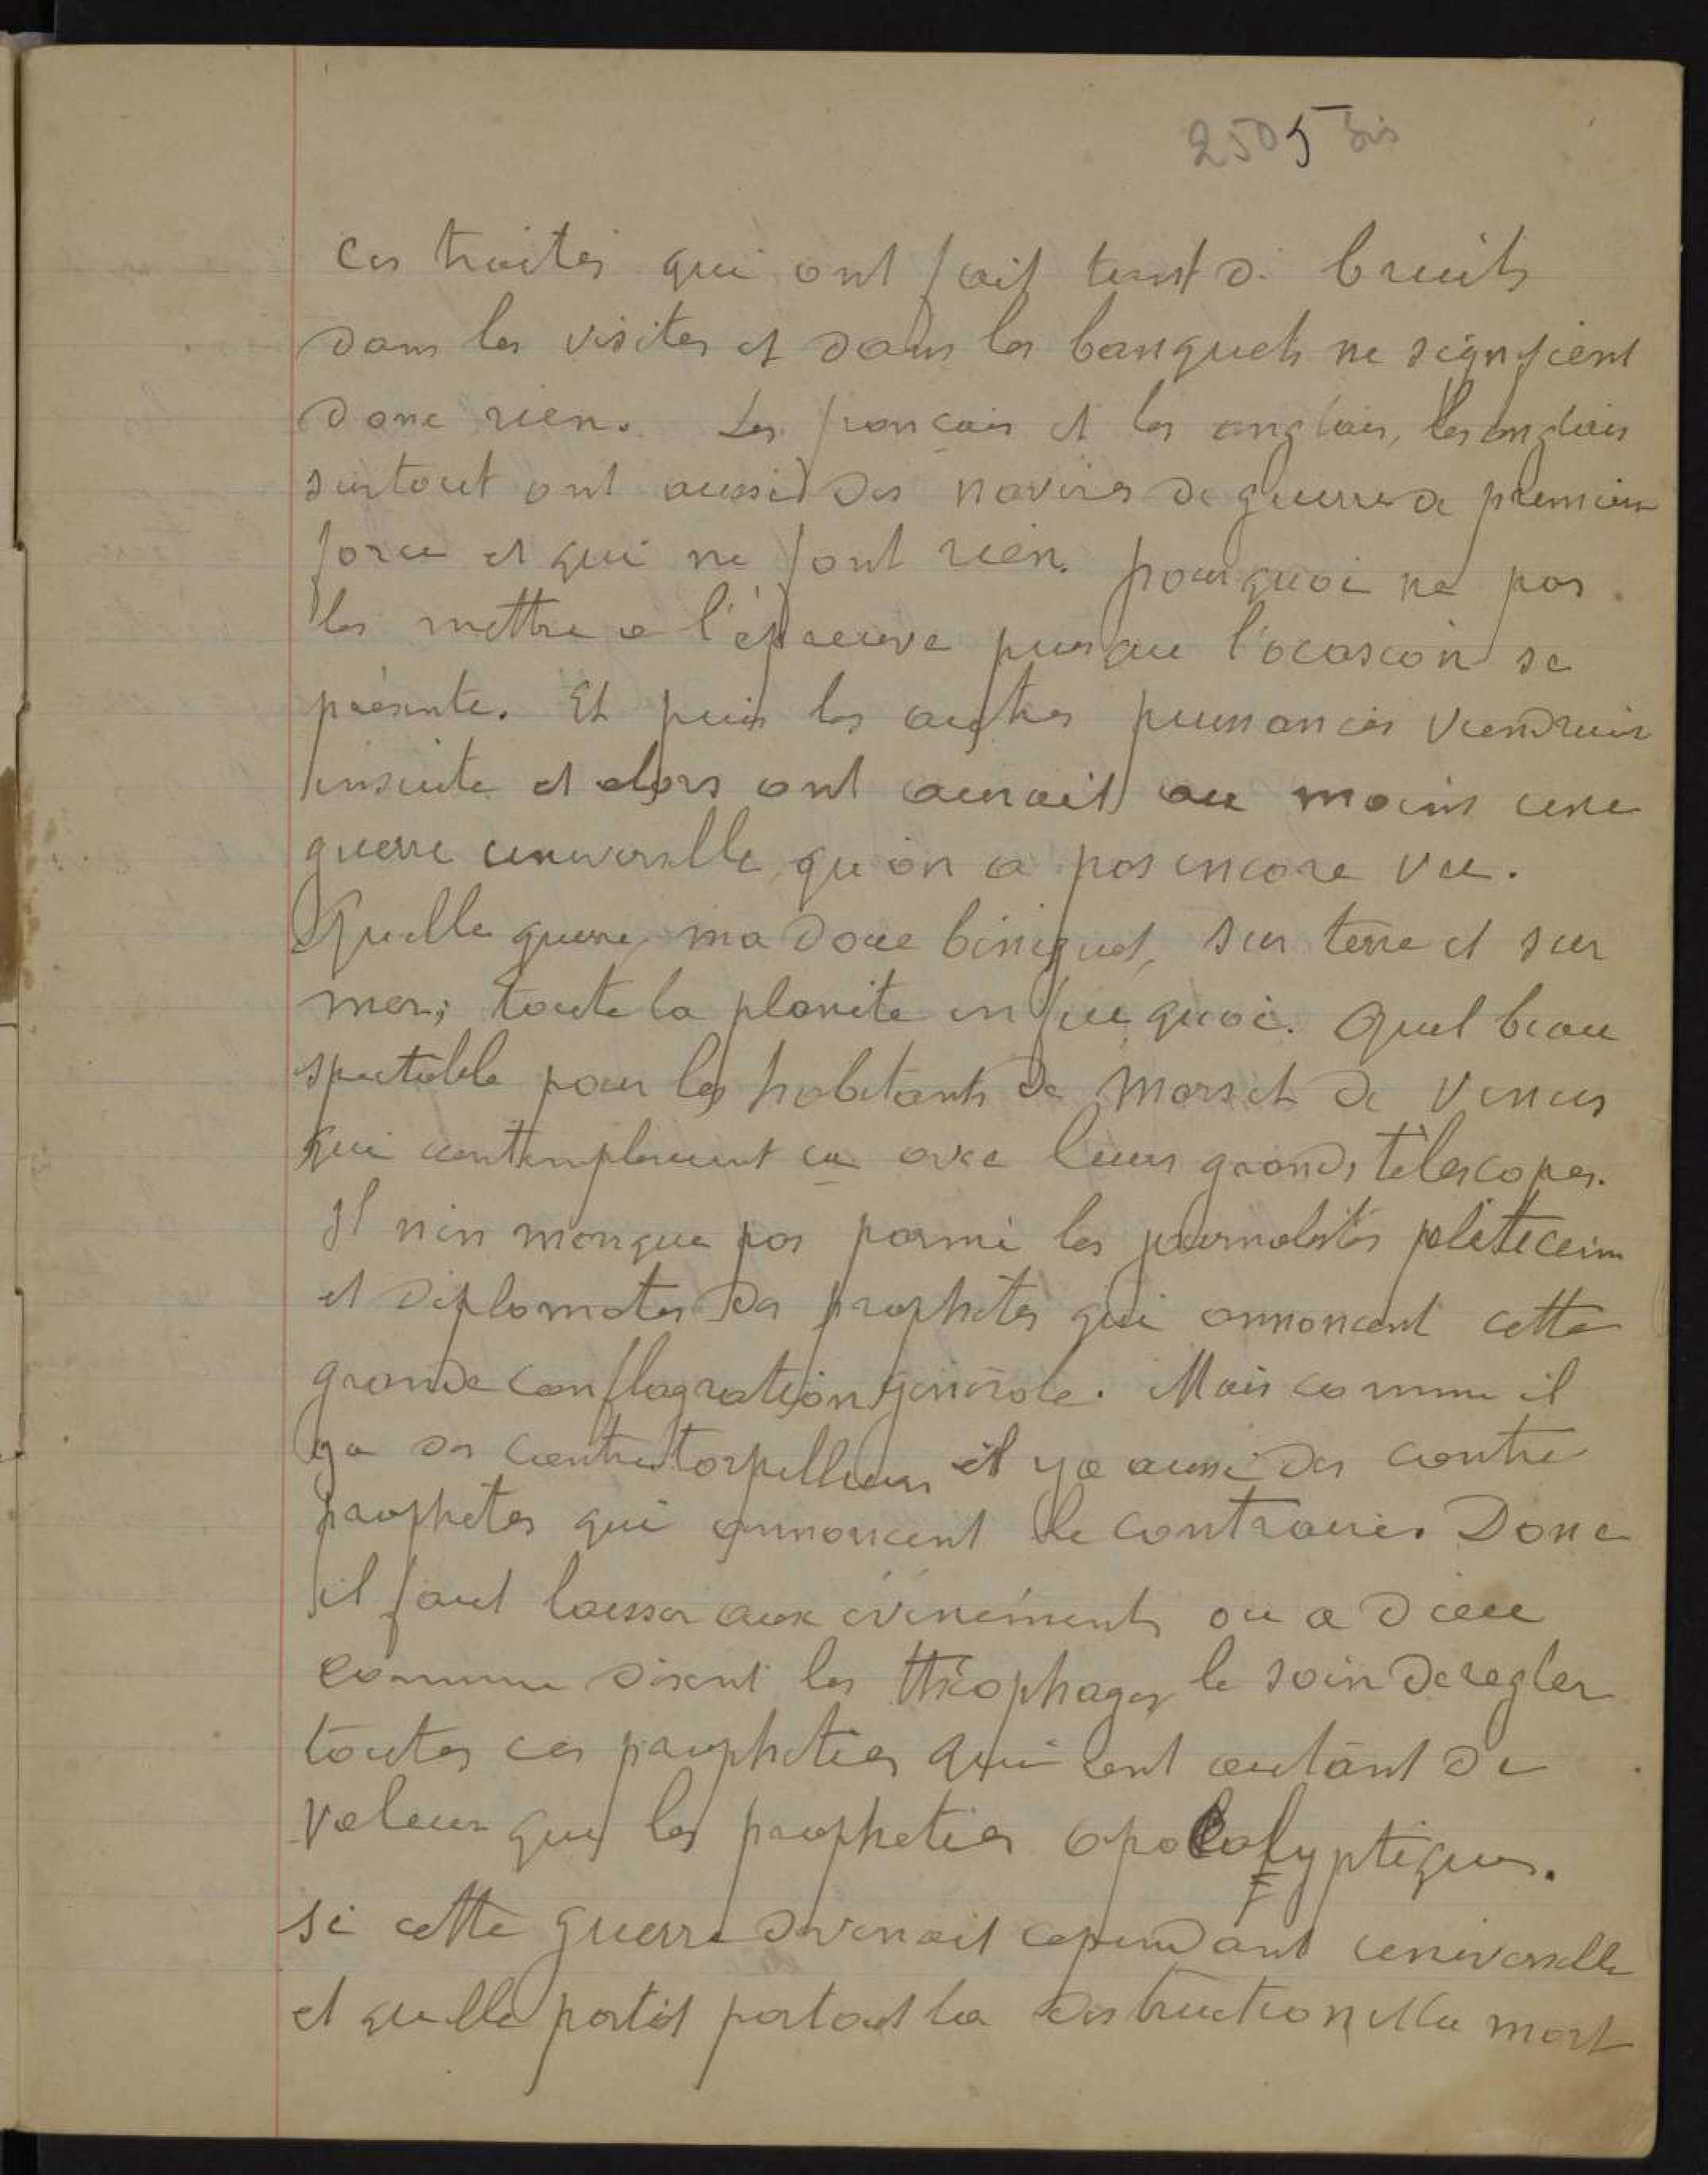 2505 bis
Ces traités qui ont fait tant de bruits
dans les visites et dans les banquets ne signifient
donc rien. Les français et les anglais, les anglais
surtout ont aussi des navires de guerre de premiere
force et qui ne font rien. pourquoi ne pas
les mettre a l'épreuve pusque l'ocasion se
présente. Et puis les autres pussances viendrais
ensuite et alors ont aurait au moins une
guerre universelle qu'on a pas encore vue.
Quelle guerre, ma doue beniguet, sur terre et sur
mer; toute la planete en feu quoi. Quel beau
spectable pour les habitants de Mars et de Venus
qui contempleraient ca avec leurs grands télescopes.
Il n'en manque pas parmi les journalistes politiciens
et diplomates des prophetes qui annoncent cette
grande conflagration générale. Mais comme il
ya des contretorpilleurs il y a aussi des contre
prophetes qui annoncent le contraire. Donc
il faut laisser aux événéments ou a dieu
comme disent les théophages le soin de regler
toutes ces propheties qui ont autant de
valeur que les propheties apocalyptiques.
si cette guerre devenait cependant universelle
et quelle portat partout la destruction et la mort